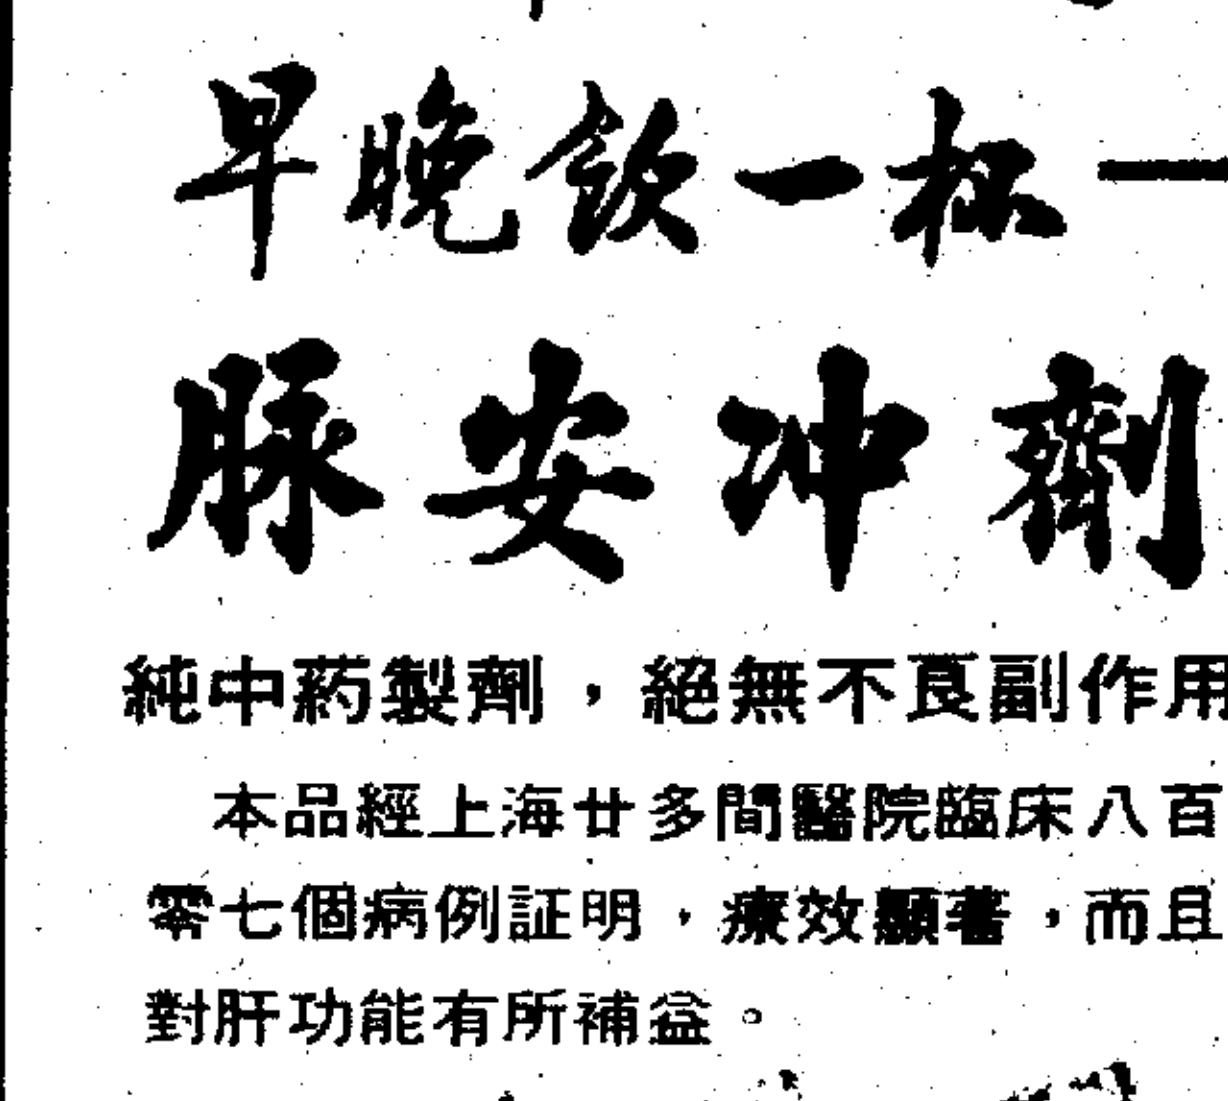 早晚飲一杯—
脉安冲劑
純中葯製劑，絕無不良副作用
本品經上海廿多間醫院臨床八百
零七個病例証明，療效顯著，而且
對肝功能有所補益。